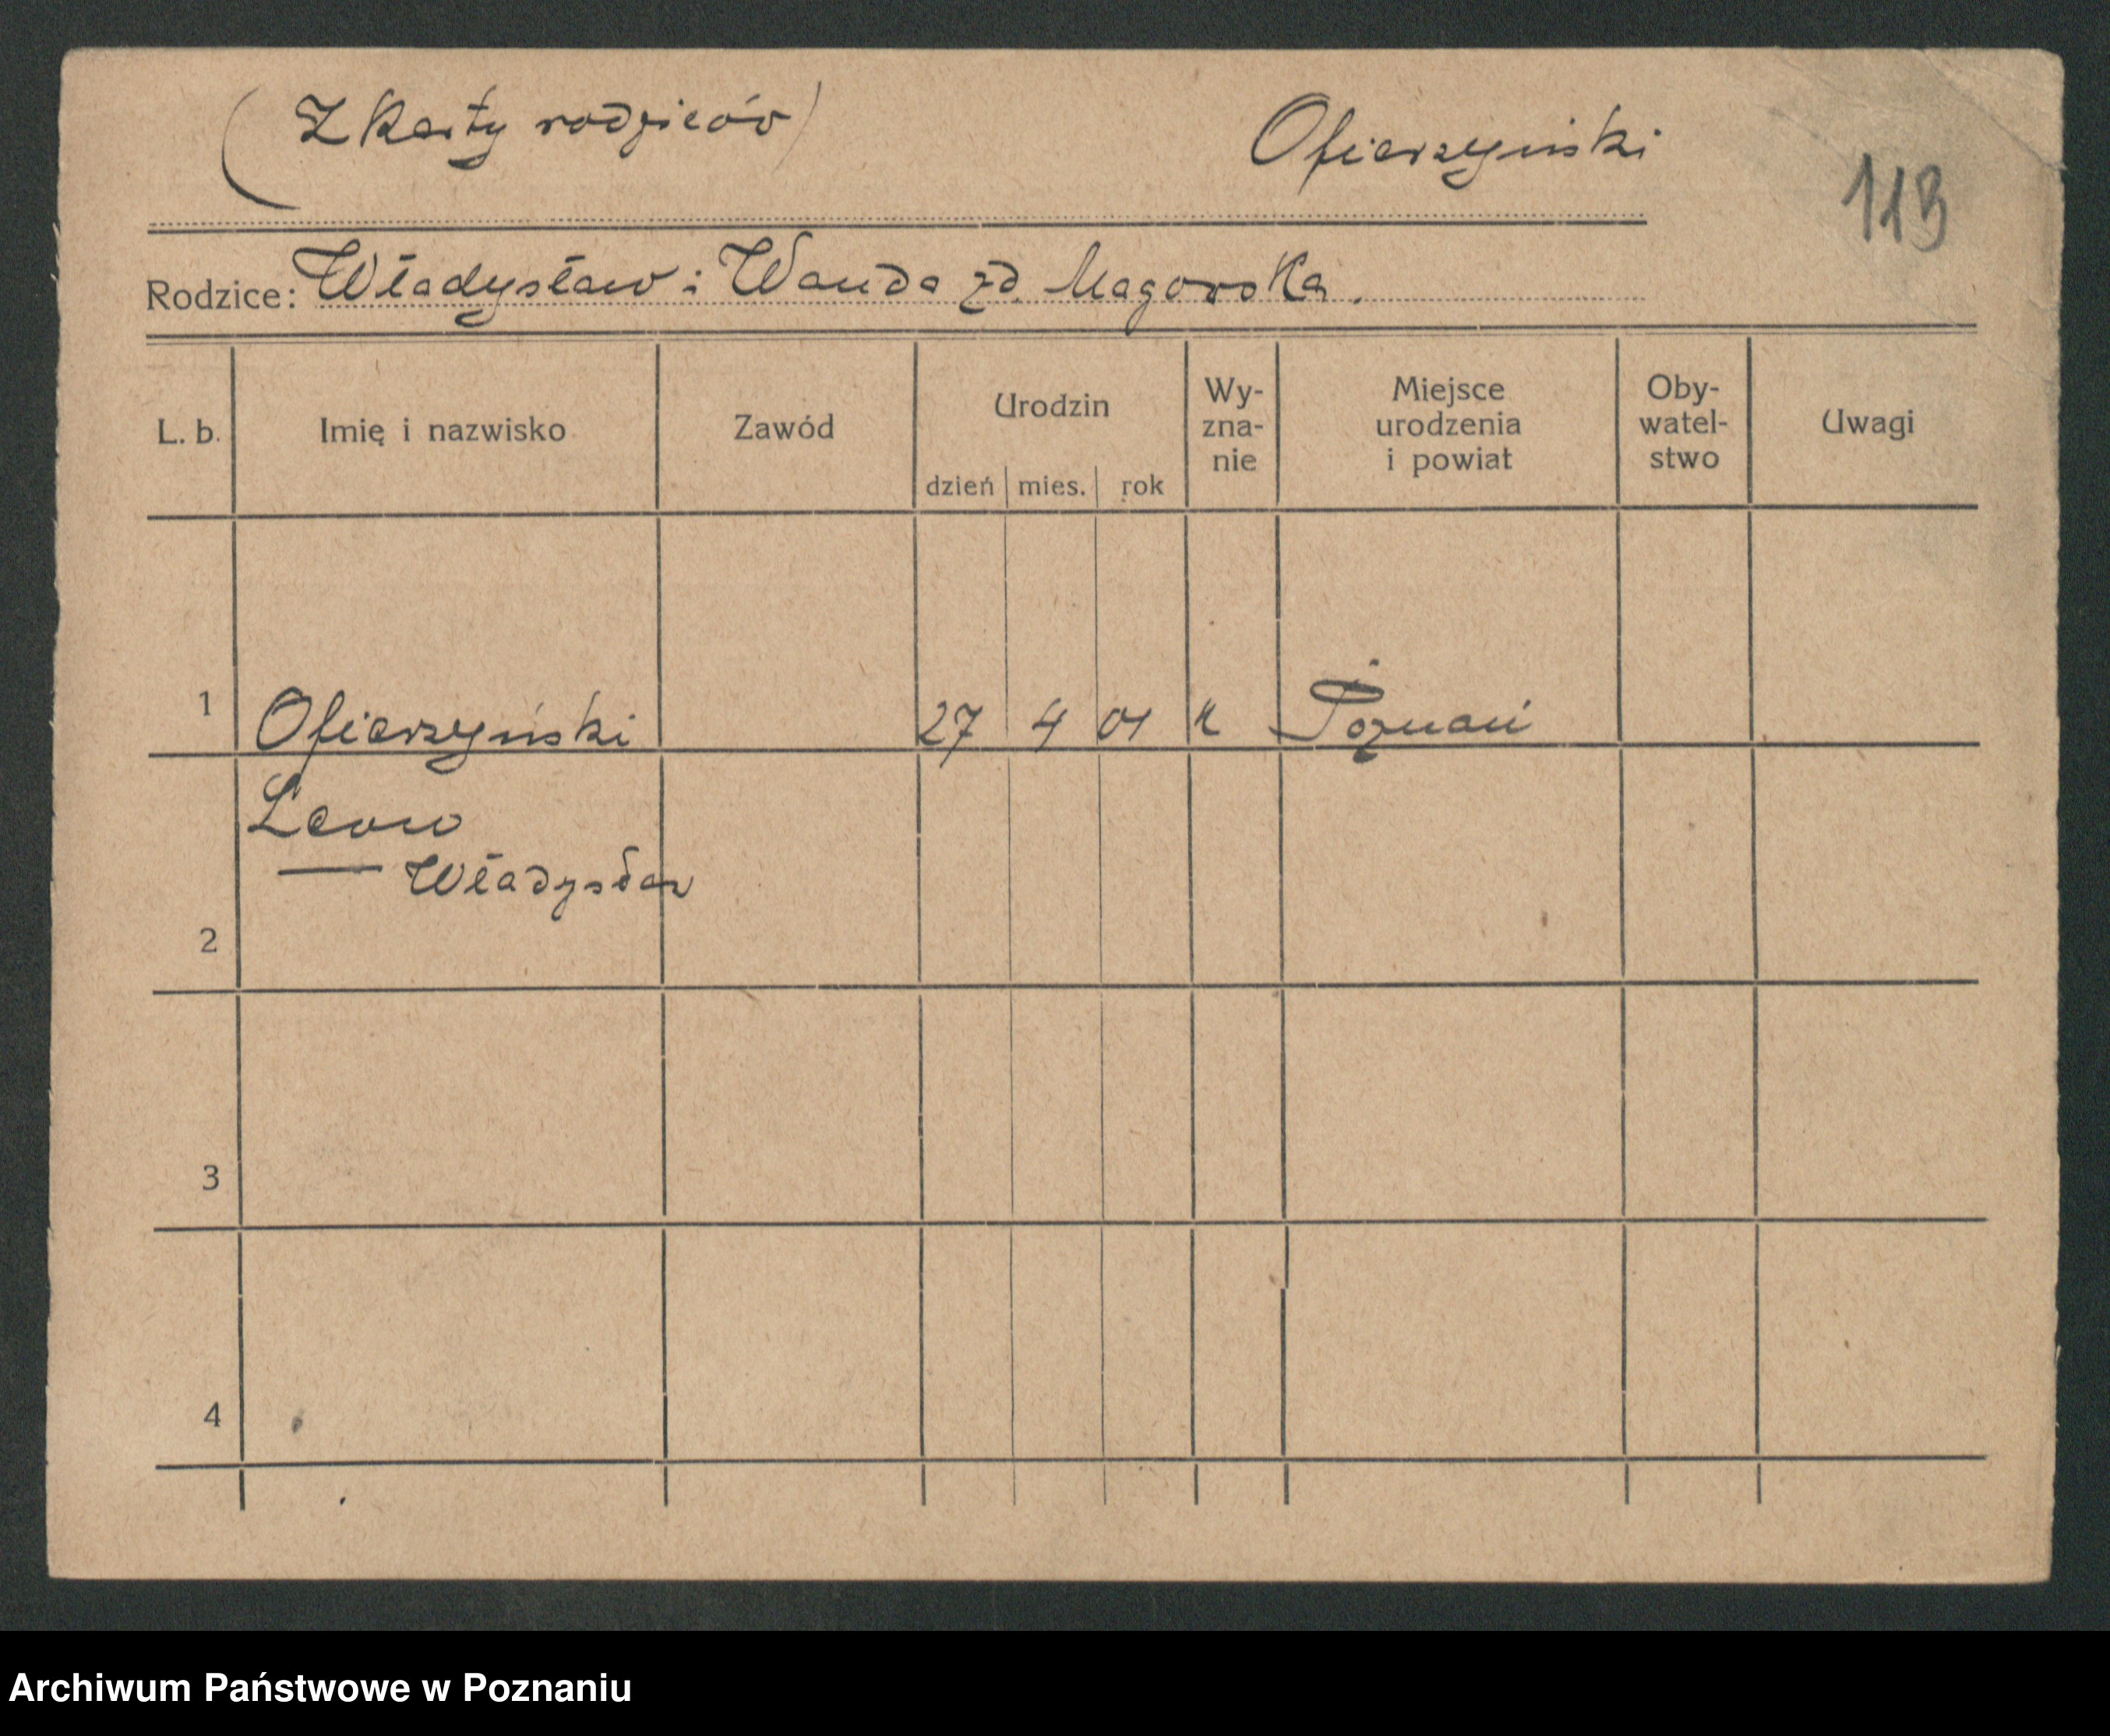 (Z Karty rodziców)
Ofierzyński
113
Rodzice: Władysław i Wanda zd. Magorska.
L. b. Imię i nazwisko Zawód Urodzin dzień mies. rok Wy-zna-nie Miejsce urodzenia i powiat Oby-watel-stwo Uwagi
1 Ofierzyński 27 4 01 k Poznań
Leon
— Władysław
2
3
4
Archiwum Państwowe w Poznaniu